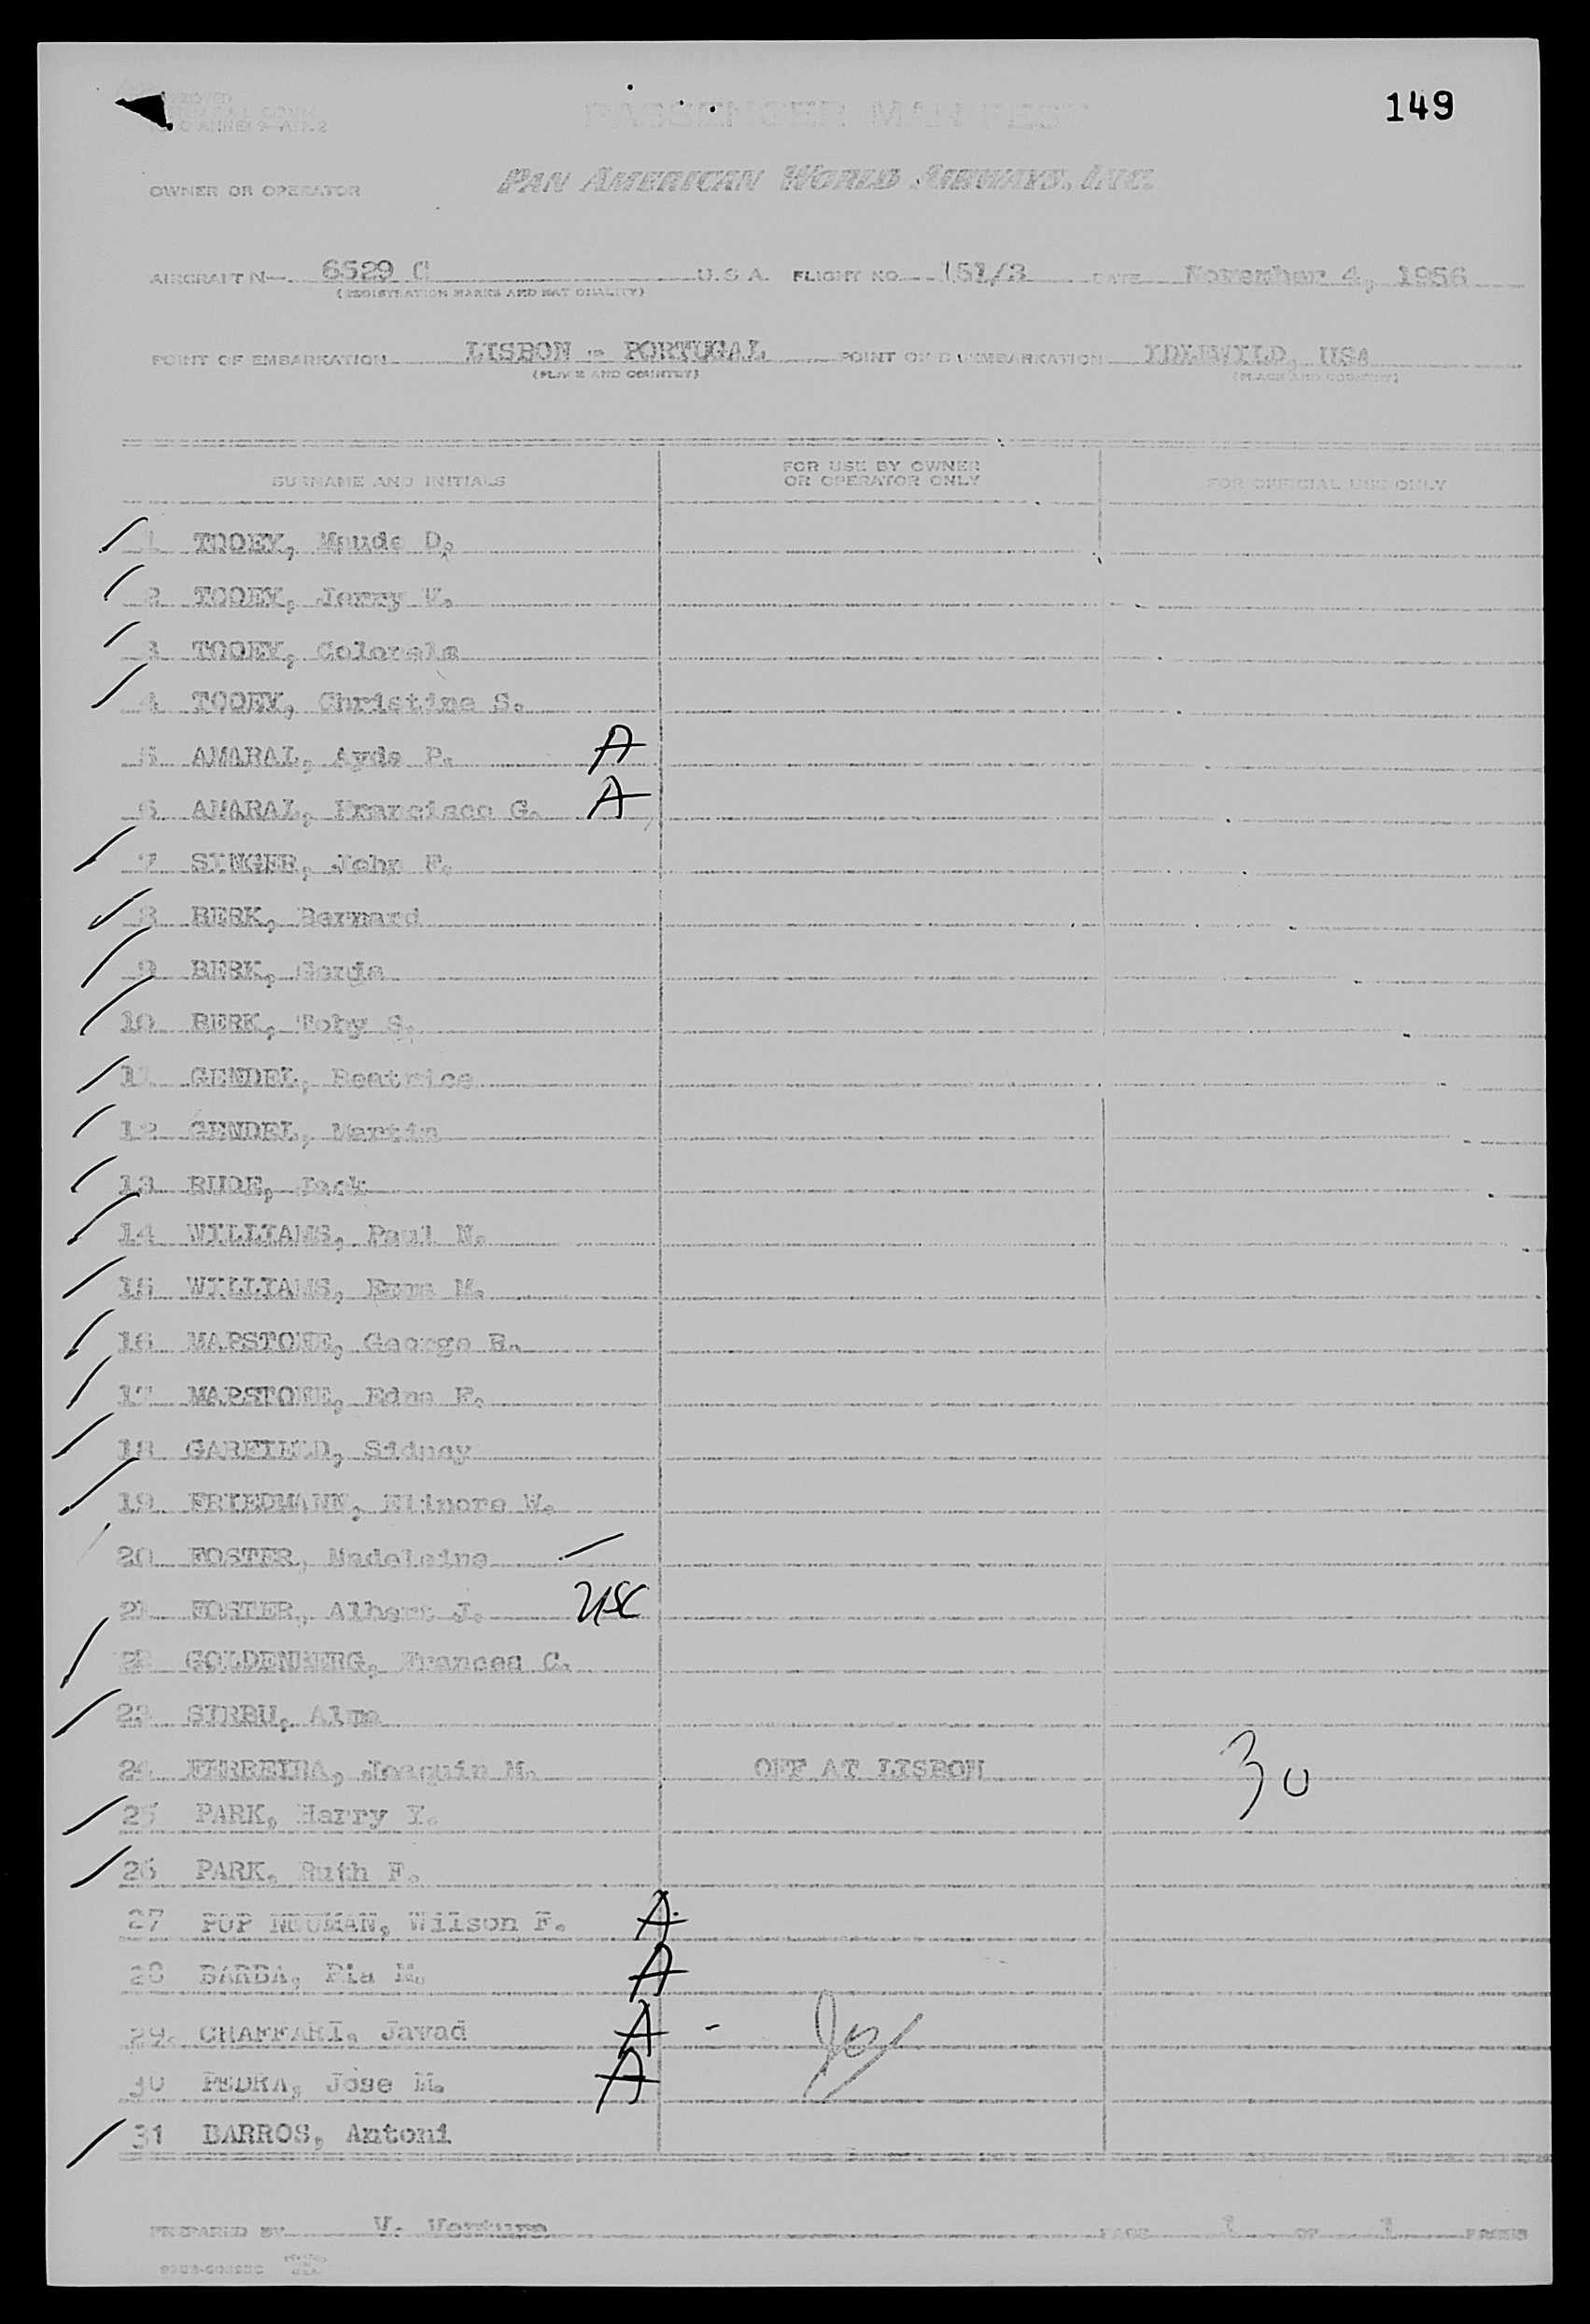 149
PASSENGER MANIFEST
OWNER OR OPERATOR PAN AMERICAN WORLD AIRWAYS, INC.
AIRCRAFT N— 6529 C U.S.A. FLIGHT NO. 151/3 DATE November 4, 1956
(REGISTRATION MARKS AND NATIONALITY)
POINT OF EMBARKATION LISBON - PORTUGAL POINT OF DISEMBARKATION IDLEWILD, USA
(PLACE AND COUNTRY) (PLACE AND COUNTRY)
SURNAME AND INITIALS FOR USE BY OWNER OR OPERATOR ONLY FOR OFFICIAL USE ONLY
1 TOOEY, Maude D.
2 TOOEY, Jerry
3 TOOEY,
4 TOOEY, Christine S.
5 AMARAL, Ayda P. A
6 AMARAL, Francisco G. A
7 SINGER, John F.
8 BERK, Bernard
9 BERK,
10 BERK, Toby S.
11 GENDEL, Beatrice
12 GENDEL, Martin
13 RUDE, Jack
14 WILLIAMS, Paul N.
15 WILLIAMS, M.
16 MAPSTONE, George
17 MAPSTONE, Edna F.
18 GARFIELD, Sidney
19 FRIEDMANN, Elinore W.
20 FOSTER, Madeleine
21 FOSTER, Albert J. USC
22 GOLDENBERG, Frances C.
23 SIRBU, Alma
24 FERREIRA, Joaquin M. OFF AT LISBON 30
25 PARK, Harry Y.
26 PARK, Ruth F.
27 POP NEUMAN, Wilson F. A
28 BARBA, Pia M. A
29. CHAFFARI, Javad A -
30 PEDRA, Jose M. A
31 BARROS, Antoni
PREPARED BY V. Ventura PAGE 1 OF 1 PAGES